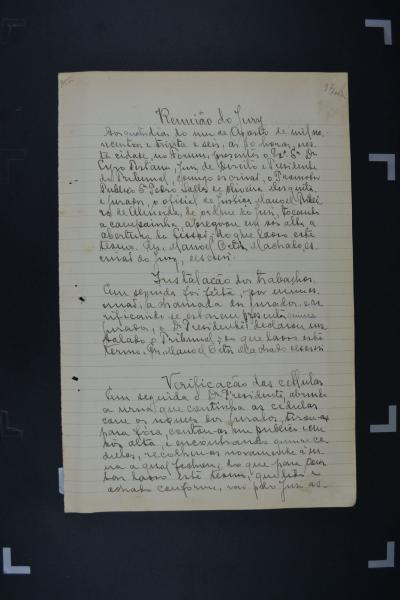 Reunião do Jury
Aos quatro dias do mez de Agosto de mil no-
vecentos e trinta e seis, ás 10 horas, nes-
ta cidade, no Forum, presente o Exº Sr. Dr.
Cyro Juiz de Direito e Presidente
do Tribunal, comigo escrivão, o Promotor
Publico Dr. Pedro Salles de Oliveira Mesquita
e jurados, o official de justiça Manoel
de Almeida, de ordem do Juiz, tocando
a campainha, apregoou em voz alta a
abertura da sessão, do que lavro este
termo. Eu, Manoel Machado, es-
crivão do Jury, escrevi.
Installação dos trabalhos
Em seguida foi feita, por mim es-
crivão, a chamada dos jurados, e ve-
rificando-se estarem presentes
jurados, o Dr. Presidente declarou ins-
tallado o Tribunal, do que lavro este
termo. Eu, Manoel Machado escrevi
Verificação das cellulas
Em seguida o Dr. Presidente, abrindo
a urna que continha as cedulas
com os nomes dos jurados, tirou-as
para fóra, contou-as em publico e em
voz alta, e encontrando quinze ce-
dulas, recolheu-as novamente á ur-
na a qual fechou, do que para
lavro este termo, que lido e
achado conforme, vae pelo Juiz as-